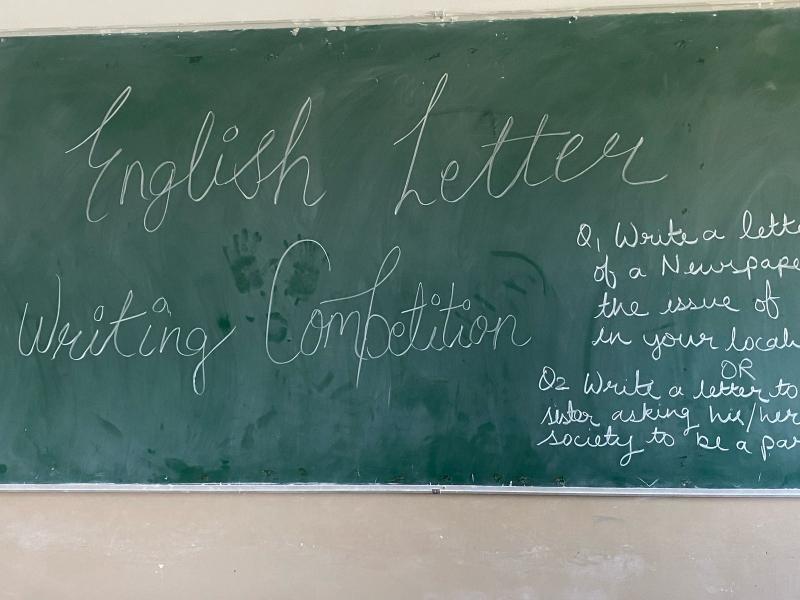 English Letter
Writing Competition
Q1 Write a lette
of a Newspape
the issue of
in your local
OR
Q2 Write a letter to
sister asking his/her
society to be a par